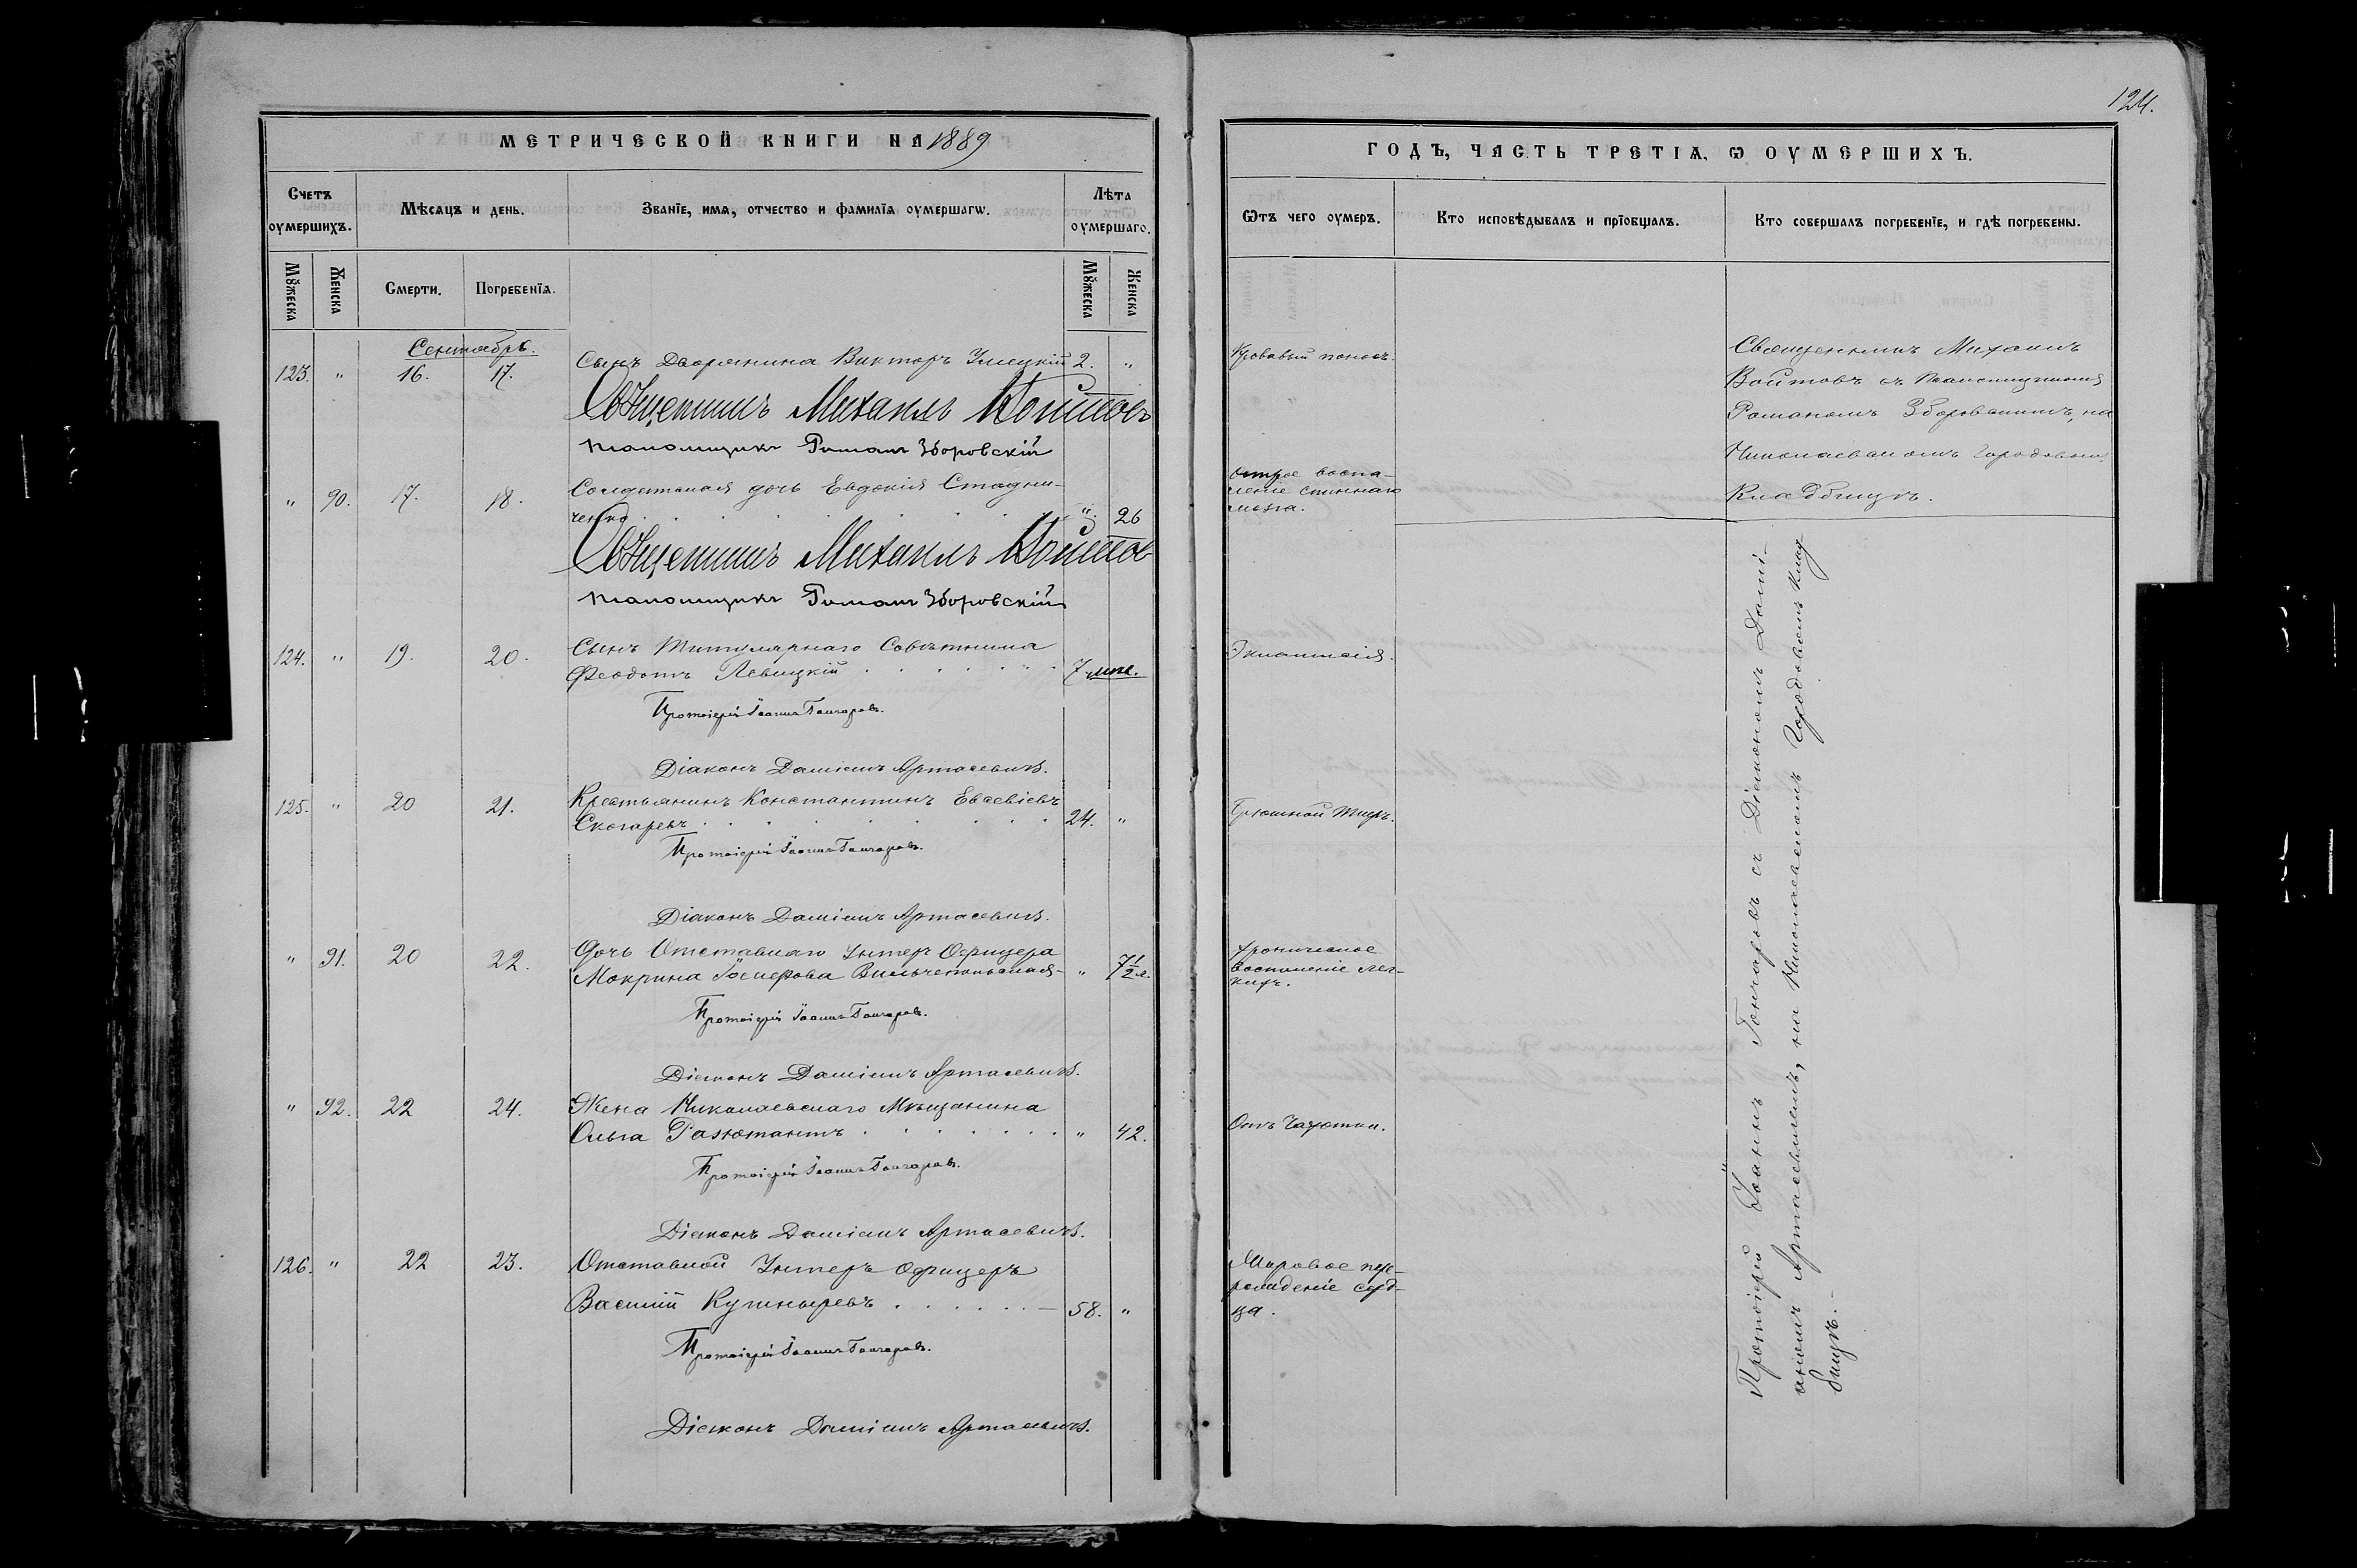 124.
МЕТРИЧЕСКОЙ КНИГИ НА 1889
Счетъ оумершихъ.
Мѣсяцъ и день.
Званїе, имѧ, отчество и фамилїѧ оумершагѡ.
Лѣта оумершаго.
Мꙋжеска
Женска
Смерти.
Погребенїѧ.
Мꙋжеска
Женска
Сентябрь.
123. " 16. 17. Сынъ Дворянина Викторъ 2. "
Священникъ Михаилъ Войтовъ
Псаломщикъ Романъ Зборовскій
" 90. 17. 18. Солдатская дочь Евдокія Стадни-
ченко . . . . . . . " 26
Священникъ Михаилъ Войтовъ
Псаломщикъ Романъ Зборовскій
124. " 19. 20. Сынъ Титулярнаго Совѣтника
Феодотъ Левицкій . . . . . . 7 мѣс.
Протоіерей Іоаннъ Гончаровъ.
Діаконъ Даміанъ Артасевичъ.
125. " 20 21. Крестьянинъ Константинъ Евсевіевъ
Скогаревъ . . . . . . . . 24. "
Протоіерей Іоаннъ Гончаровъ.
Діаконъ Даміанъ Артасевичъ.
" 91. 20 22. Дочь Отставнаго Унтеръ Офицера
Мокрина " 7 1/2 м.
Протоіерей Іоаннъ Гончаровъ.
Діаконъ Даміанъ Артасевичъ.
" 92. 22 24. Жена Николаевскаго Мѣщанина
Ольга . . . . . . . " 42.
Протоіерей Іоаннъ Гончаровъ.
Діаконъ Даміанъ Артасевичъ.
126. " 22 23. Отставной Унтеръ Офицеръ
Василій Кушныревъ . . . . . . — 58. "
Протоіерей Іоаннъ Гончаровъ.
Діаконъ Даміанъ Артасевичъ.
ГОДЪ, ЧАСТЬ ТРЕТІѦ, Ѡ ОУМЕРШИХЪ.
Ѿтъ чего оумеръ.
Кто исповѣдывалъ и прїобщалъ.
Кто совершалъ погребенїе, и гдѣ погребены.
Кровавый поносъ.
Острое воспа-
леніе спиннаго
мозга.
Эклампсія.
Брюшной тифъ.
Хроническое
воспаленіе лег-
кихъ.
Отъ Чахотки.
Жировое пере-
рожденіе серд-
ца.
Священникъ Михаилъ
Войтовъ съ Псаломщикомъ
Романомъ Зборовскимъ, на
Николаевскомъ Городовомъ
Кладбищѣ.
Протоіерей Іоаннъ Гончаровъ съ Діакономъ Дамі-
аномъ Артасевичемъ, на Николаевскомъ Городовомъ Клад
бищѣ. –